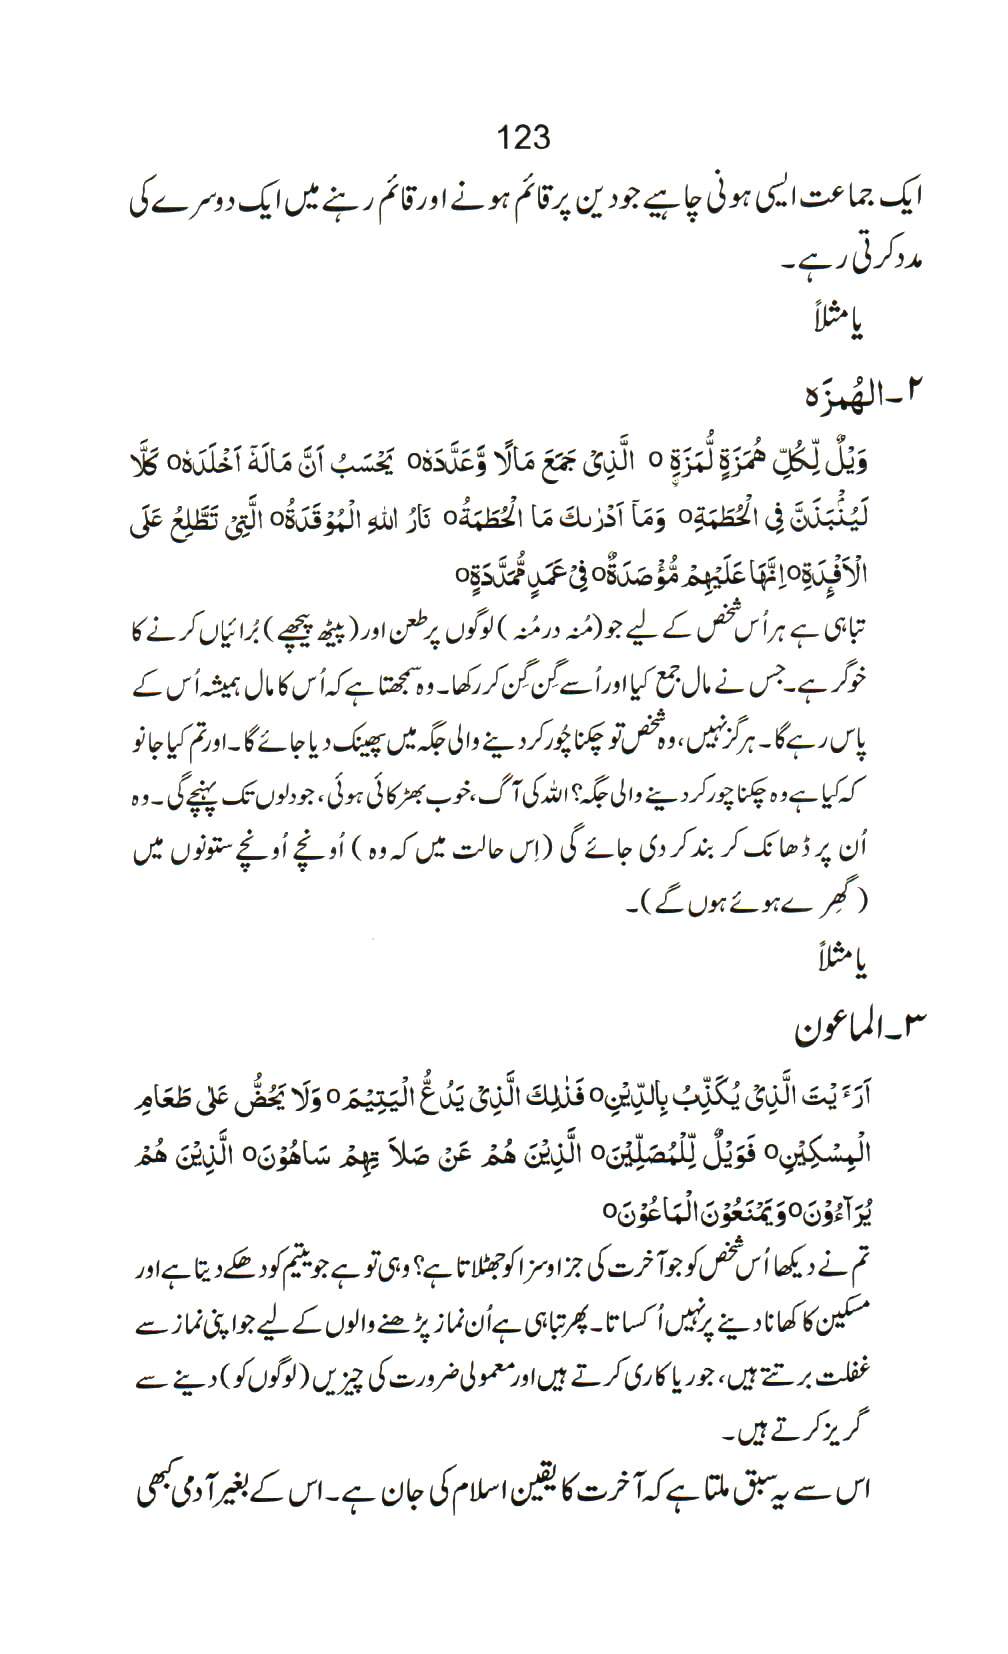 123
ایک جماعت ایسی ہونی چاہیے جو دین پر قائم ہونے اور قائم رہنے میں ایک دوسرے کی
مدد کرتی رہے۔
یا مثلاً
۲۔الهُمزَہ
وَيْلٌ لِّكُلِّ هُمَزَةٍ لُّمَزَةٍ o الَّذِىْ جَمَعَ مَالًا وَّعَدَّدَهٗo يَحْسَبُ اَنَّ مَالَهٗٓ اَخْلَدَهٗo كَلَّا
لَيُنْۢبَذَنَّ فِى الْحُطَمَةِo وَمَآ اَدْرٰىكَ مَا الْحُطَمَةُo نَارُ اللهِ الْمُوْقَدَةُo الَّتِىْ تَطَّلِعُ عَلَى
الْاَفْئِدَةِoاِنَّهَا عَلَيْهِمْ مُّؤْصَدَةٌoفِىْ عَمَدٍ مُّمَدَّدَةٍo
تباہی ہے ہر اُس شخص کے لیے جو (مُنہ در مُنہ ) لوگوں پر طعن اور (پیٹھ پیچھے) بُرائیاں کرنے کا
خوگر ہے۔ جس نے مال جمع کیا اور اُسے گِن گِن کر رکھا۔ وہ سمجھتا ہے کہ اُس کا مال ہمیشہ اُس کے
پاس رہے گا۔ ہرگز نہیں، وہ شخص تو چکنا چُور کر دینے والی جگہ میں پھینک دیا جائے گا۔ اور تم کیا جانو
کہ کیا ہے وہ چکنا چور کر دینے والی جگہ؟ اللہ کی آگ، خوب بھڑکائی ہوئی، جو دلوں تک پہنچے گی۔ وہ
اُن پر ڈھانک کر بند کر دی جائے گی (اِس حالت میں کہ وہ ) اُونچے اُونچے ستونوں میں
( گھِرے ہوئے ہوں گے)۔
یا مثلاً
۳۔الماعون
اَرَءَيْتَ الَّذِىْ يُكَذِّبُ بِالدِّيْنِo فَذٰلِكَ الَّذِىْ يَدُعُّ الْيَتِيْمَo وَلَا يَحُضُّ عَلٰى طَعَامِ
الْمِسْكِيْنِo فَوَيْلٌ لِّلْمُصَلِّيْنَo الَّذِيْنَ هُمْ عَنْ صَلاَ تِهِمْ سَاهُوْنَo الَّذِيْنَ هُمْ
يُرَآءُوْنَoوَيَمْنَعُوْنَ الْمَاعُوْنَo
تم نے دیکھا اُس شخص کو جو آخرت کی جزا و سزا کو جھٹلاتا ہے؟ وہی تو ہے جو یتیم کو دھکے دیتا ہے اور
مسکین کا کھانا دینے پر نہیں اُکساتا۔ پھر تباہی ہے اُن نماز پڑھنے والوں کے لیے جو اپنی نماز سے
غفلت برتتے ہیں، جو ریاکاری کرتے ہیں اور معمولی ضرورت کی چیزیں (لوگوں کو) دینے سے
گریز کرتے ہیں۔
اس سے یہ سبق ملتا ہے کہ آخرت کا یقین اسلام کی جان ہے۔ اس کے بغیر آدمی کبھی